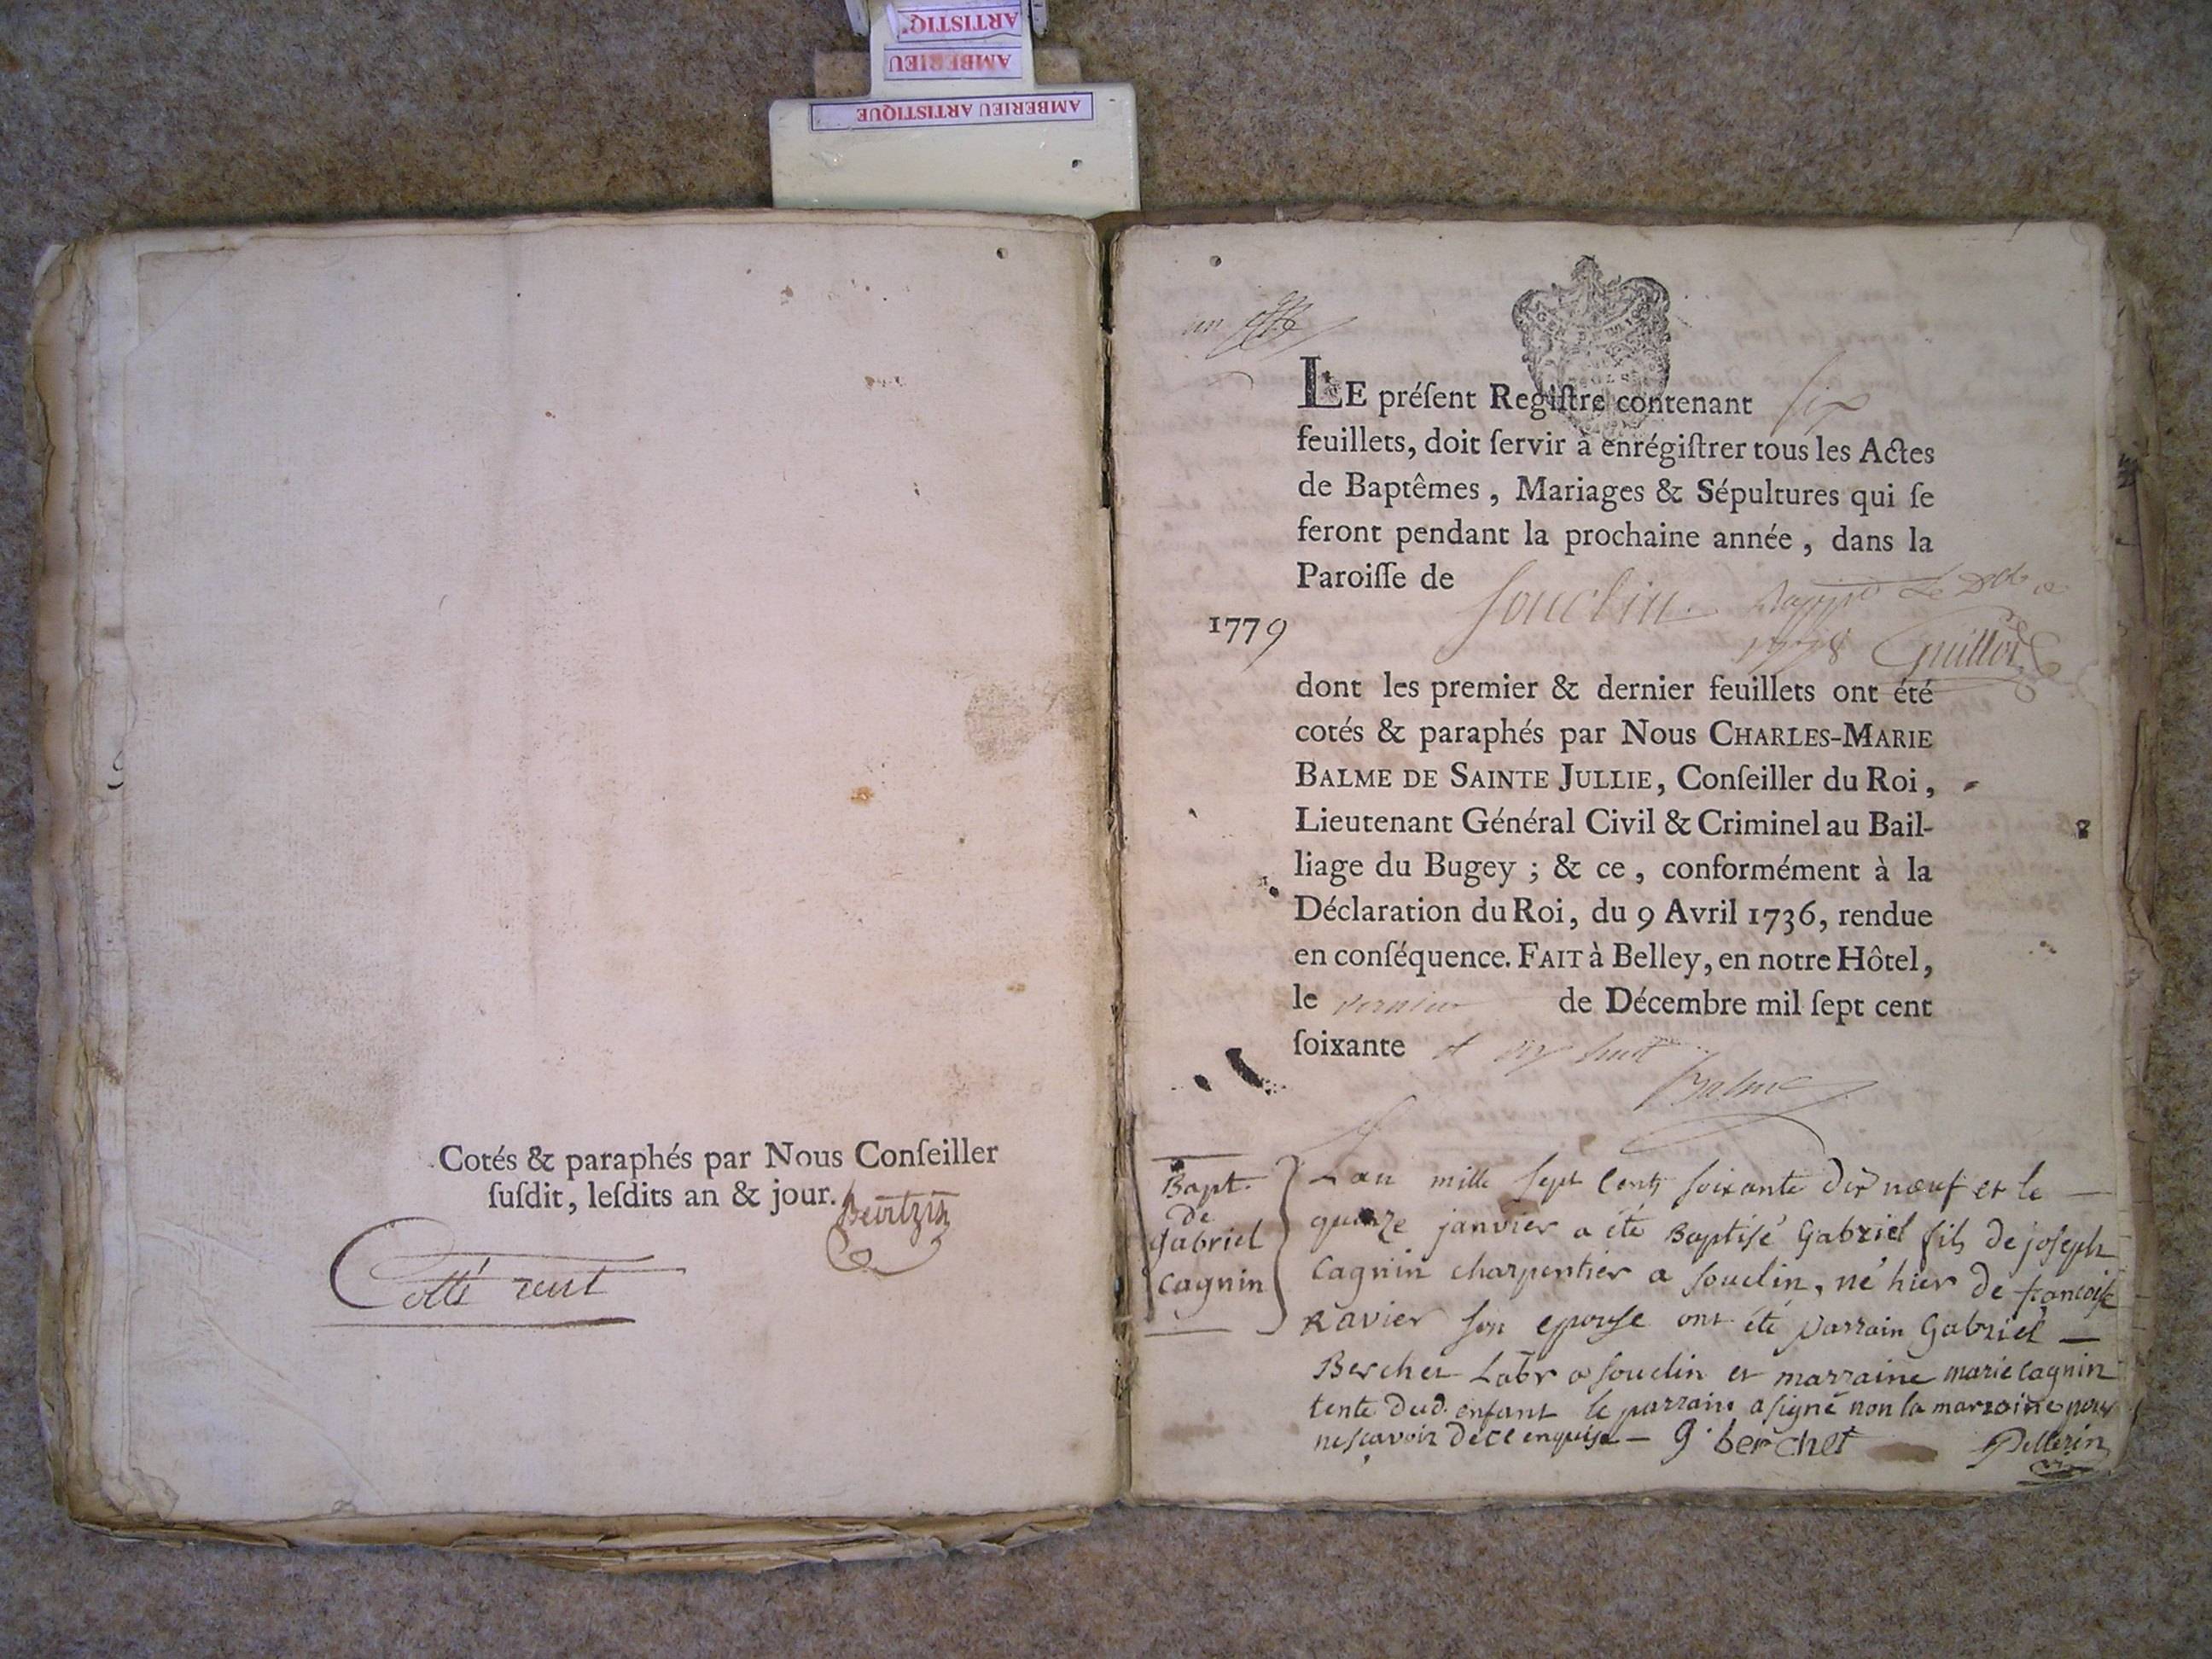 ARTISTIQ'
AMBERIEU
AMBERIEU ARTISTIQUE
Cotés & paraphés par Nous Conſeiller
ſuſdit, leſdits an & jour.
Cotté
un
LE préſent Regiſtre contenant six
feuillets, doit ſervir à enrégiſtrer tous les Actes
de Baptêmes, Mariages & Sépultures qui ſe
feront pendant la prochaine année, dans la
Paroiſſe de Souclin.
1779
1778 Guillot
dont les premier & dernier feuillets ont été
cotés & paraphés par Nous CHARLES-MARIE
BALME DE SAINTE JULLIE, Conſeiller du Roi,
Lieutenant Général Civil & Criminel au Bail-
liage du Bugey ; & ce, conformément à la
Déclaration du Roi, du 9 Avril 1736, rendue
en conſéquence. FAIT à Belley, en notre Hôtel,
le dernier de Décembre mil ſept cent
ſoixante et dix huit
Balme
Bapt.
de
gabriel
cagnin
Lan mille sept cents soixante dix nœuf et le
quinze janvier a été Baptisé Gabriel fils de joseph
Cagnin charpentier a souclin, né hier de francoise
Ravier son epouse ont été parrain Gabriel
Berchet Labr a souclin et marraine marie cagnin
tente dud. enfant le parrain a signé non la marraine pour
ne sçavoir de ce enquise - g. berchet Pellerin